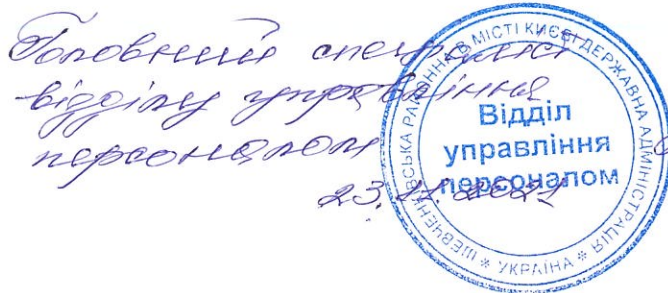 Головний спеціаліст
відділу управління
персоналом
23.11.2021
ШЕВЧЕНКІВСЬКА РАЙОННА В МІСТІ КИЄВІ ДЕРЖАВНА АДМІНІСТРАЦІЯ
* УКРАЇНА *
Відділ
управління
персоналом